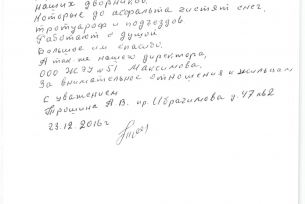 наших дворников.
Которые до асфальта чистят снег,
тротуаров и подъездов.
Работают с душой
Большое им спасибо.
А так же нашему директора,
ООО ЖЭУ №51 Максимова.
За внимательное отношение к жильцам
С уважением
Трошина А.В. пр. Ибрагимова д. 47 кв 2
23.12.2016г